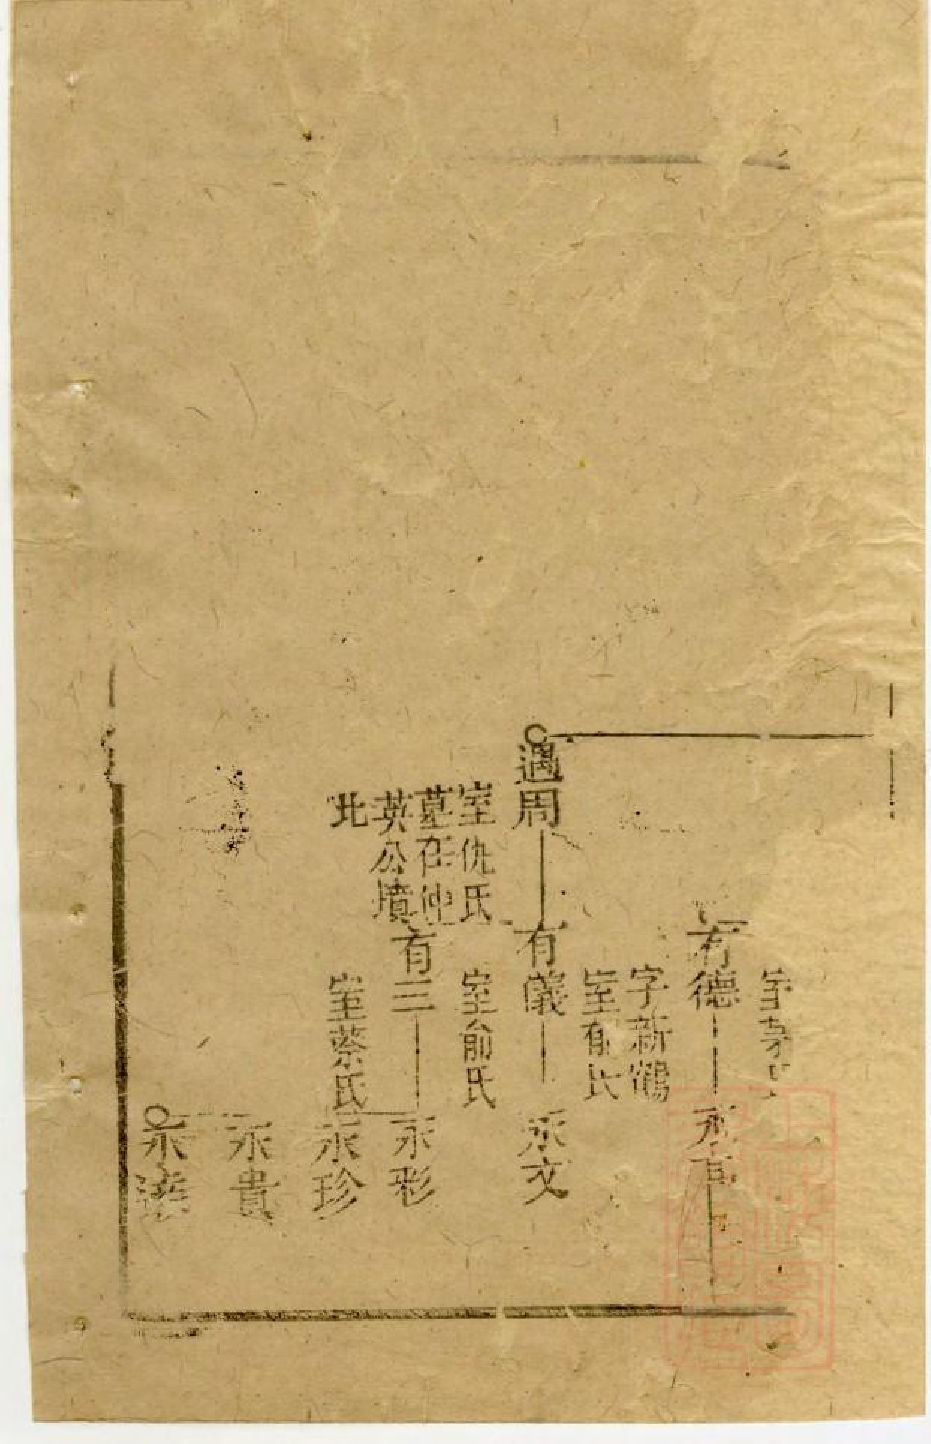 遇周
室仇氏
墓在仲
英公墳
北
有德
字新鶴
室郁氏
有儀
室俞氏
有三
室蔡氏
永文
永彩
永珍
永貴
永